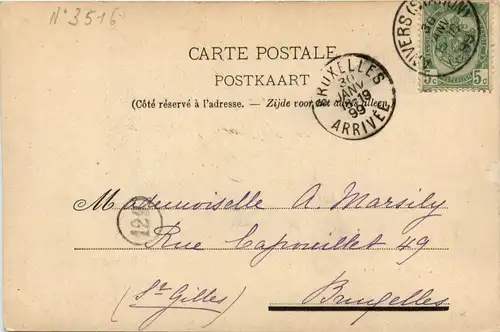 N° 3516
CARTE POSTALE
POSTKAART
(Côté réservé à l'adresse. — Zijde voor het adres alleen.
BRUXELLES
30
JANV
18-19
99
ARRIVÉE
ANVERS
30
JANV
5c 5c
Mademoiselle A. Marsily
Rue Capouillet 49
(St Gilles)
Bruxelles